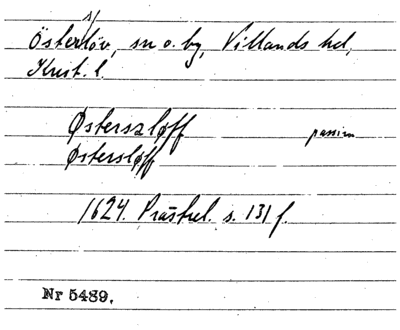 Österslöv, sn o. by, Villands hd,
Krist. l.
Østerszløff passim
Østersløff
1624. Prästrel. s. 131 f.
Nr 5489.